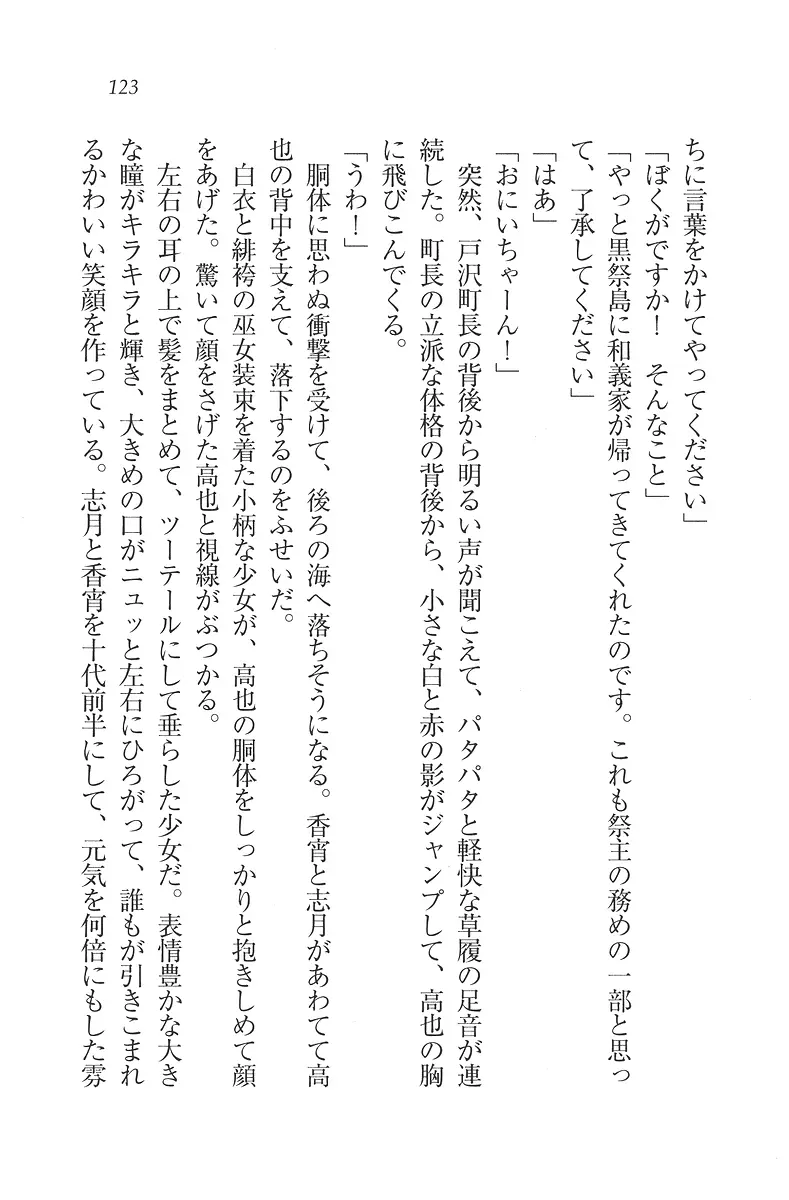 123
ちに言葉をかけてやってください」
「ぼくがですか！　そんなこと」
「やっと黒祭島に和義家が帰ってきてくれたのです。これも祭主の務めの一部と思っ
て、了承してください」
「はあ」
「おにいちゃーん！」
　突然、戸沢町長の背後から明るい声が聞こえて、パタパタと軽快な草履の足音が連
続した。町長の立派な体格の背後から、小さな白と赤の影がジャンプして、高也の胸
に飛びこんでくる。
「うわ！」
　胴体に思わぬ衝撃を受けて、後ろの海へ落ちそうになる。香宵と志月があわてて高
也の背中を支えて、落下するのをふせいだ。
　白衣と緋袴の巫女装束を着た小柄な少女が、高也の胴体をしっかりと抱きしめて顔
をあげた。驚いて顔をさげた高也と視線がぶつかる。
　左右の耳の上で髪をまとめて、ツーテールにして垂らした少女だ。表情豊かな大き
な瞳がキラキラと輝き、大きめの口がニュッと左右にひろがって、誰もが引きこまれ
るかわいい笑顔を作っている。志月と香宵を十代前半にして、元気を何倍にもした雰